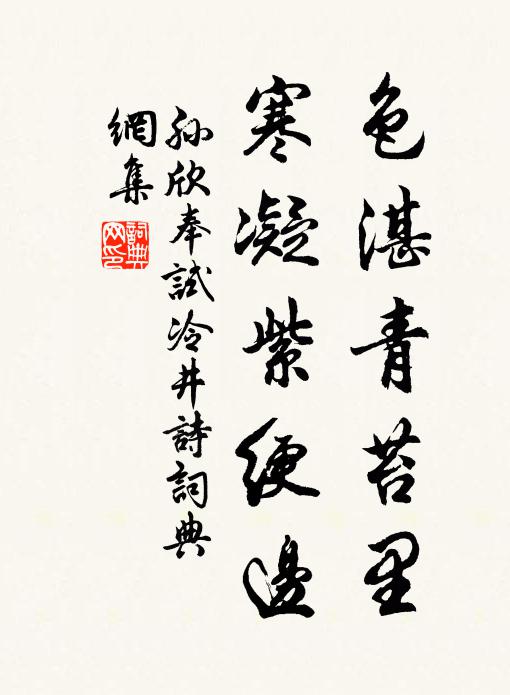 色湛青苔里
寒凝紫绠邊
孫欣奉試冷井詩詞典
網集
詞典网印